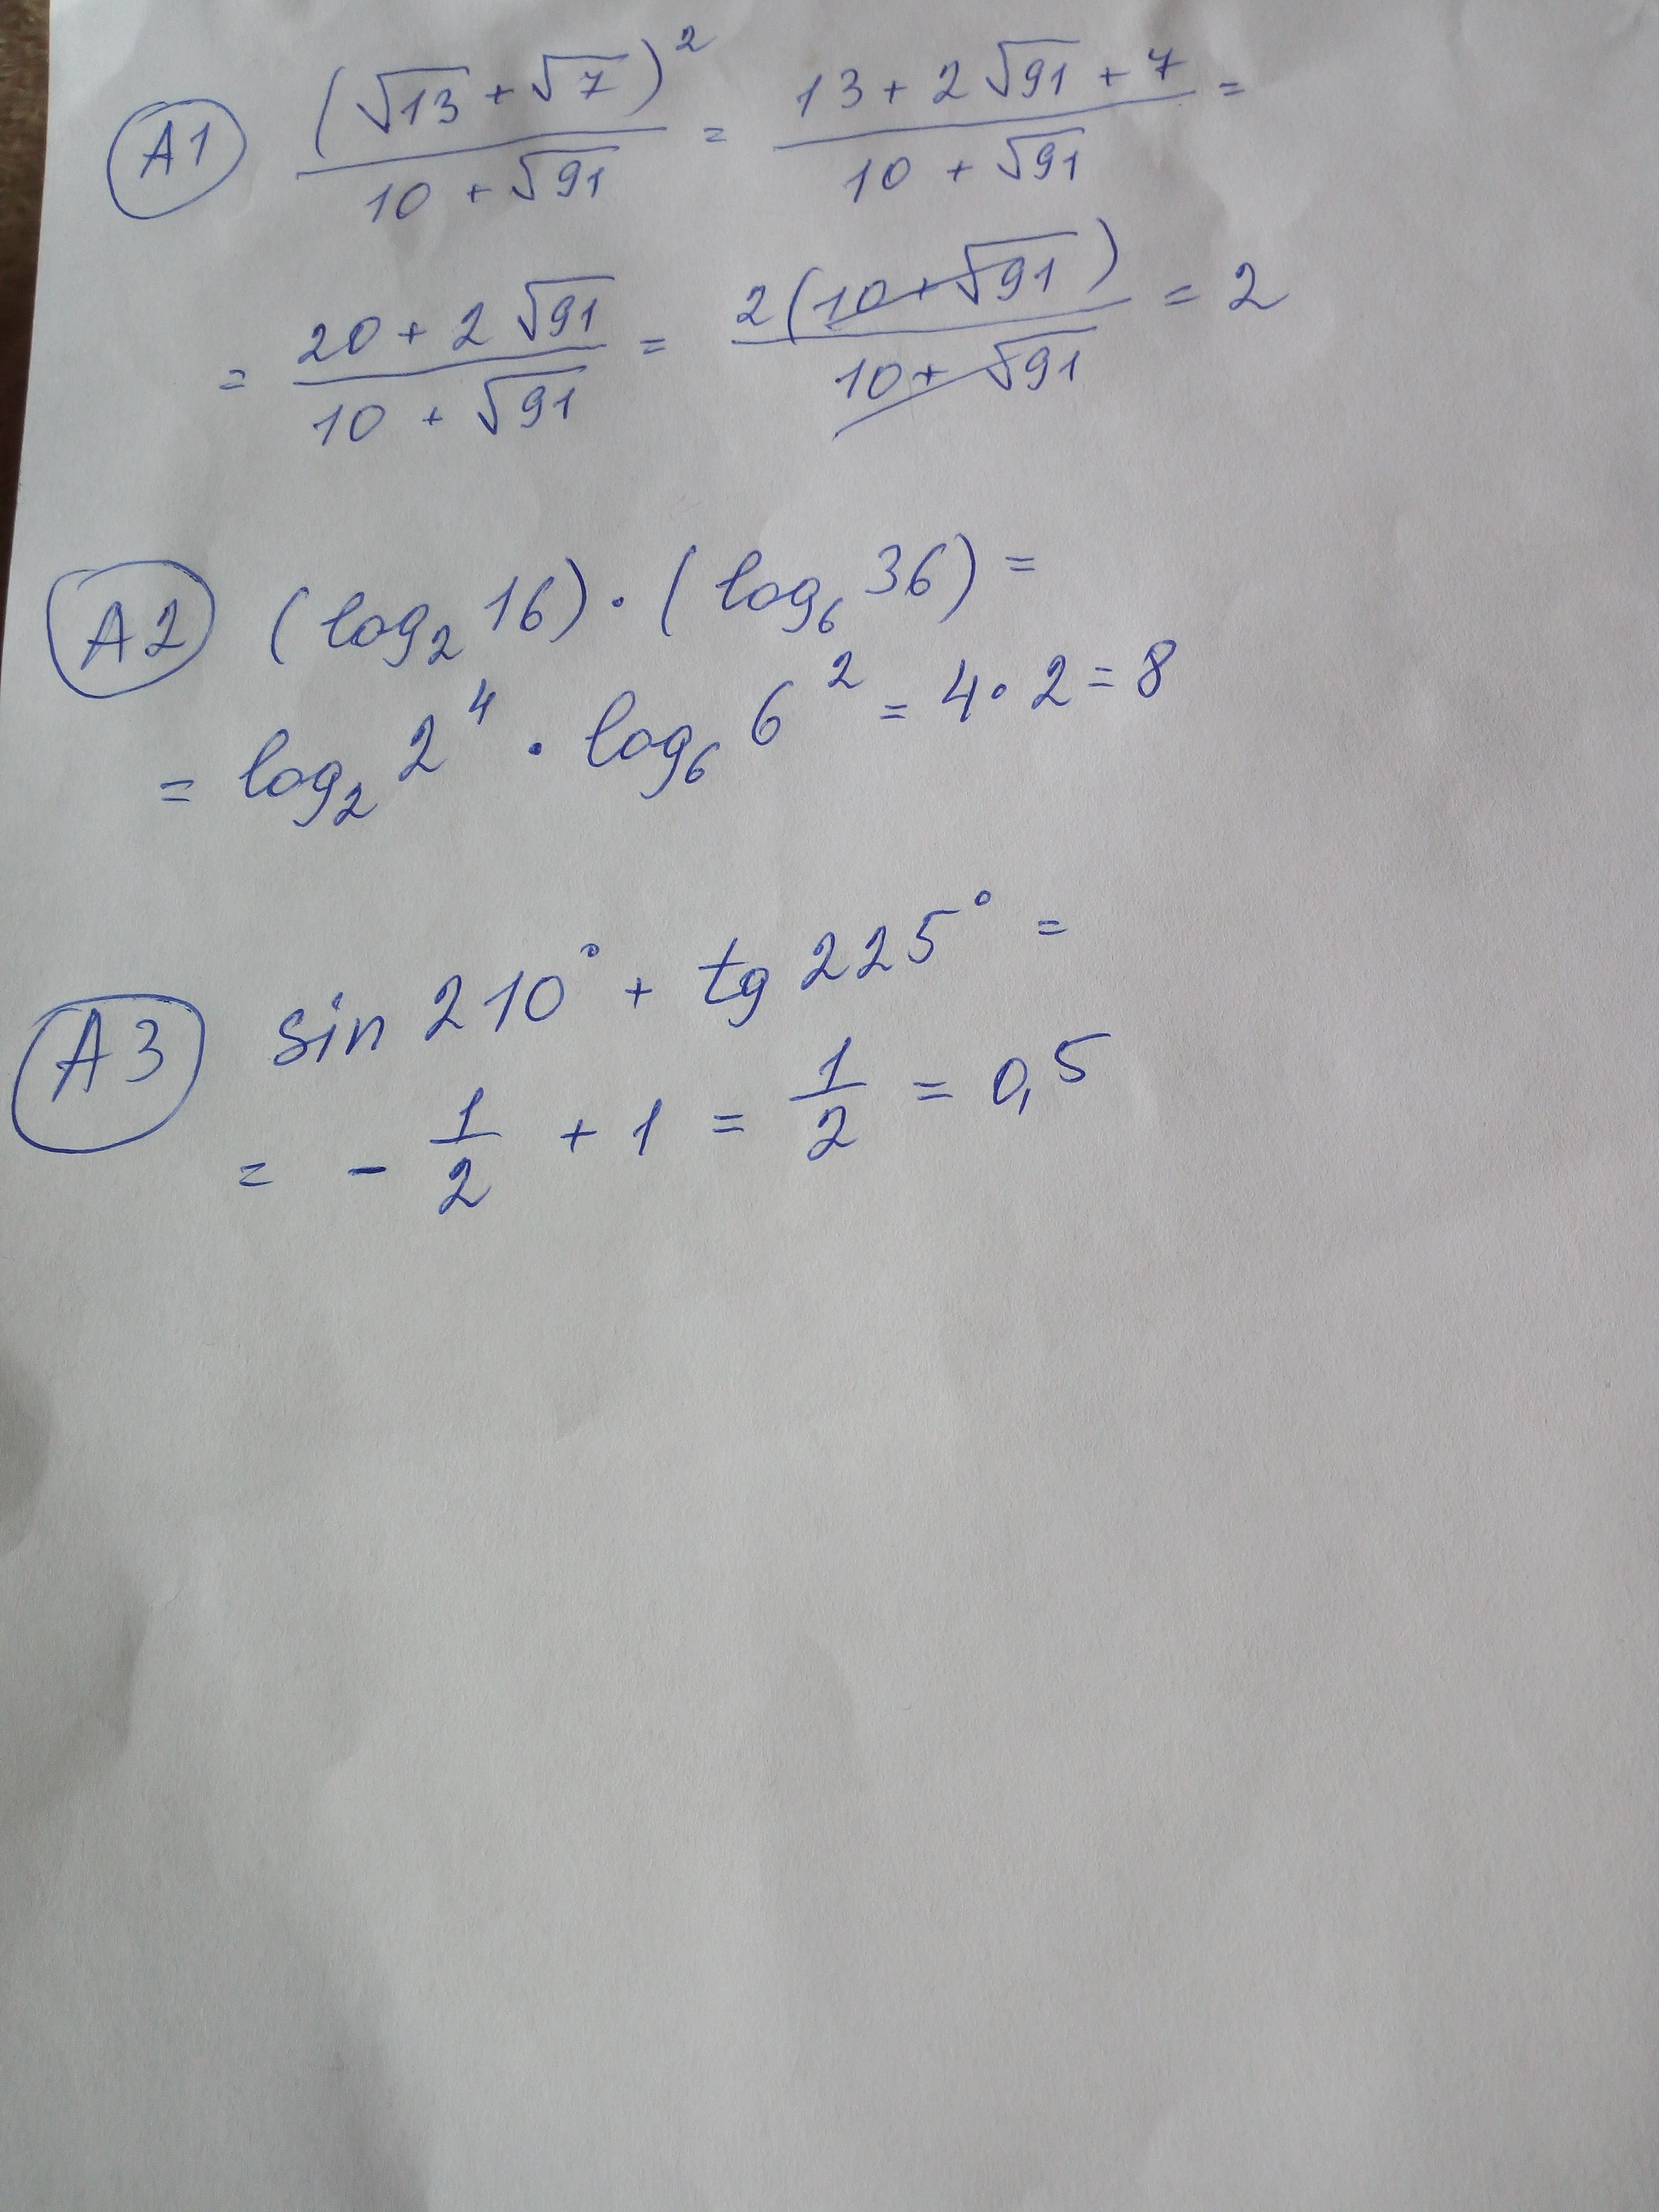 A1 (√13 + √7)² / (10 + √91) = (13 + 2√91 + 7) / (10 + √91) =
= (20 + 2√91) / (10 + √91) = 2(10 + √91) / (10 + √91) = 2
A2 (log₂ 16) · (log₆ 36) =
= log₂ 2⁴ · log₆ 6² = 4 · 2 = 8
A3 sin 210° + tg 225° =
= - 1/2 + 1 = 1/2 = 0,5